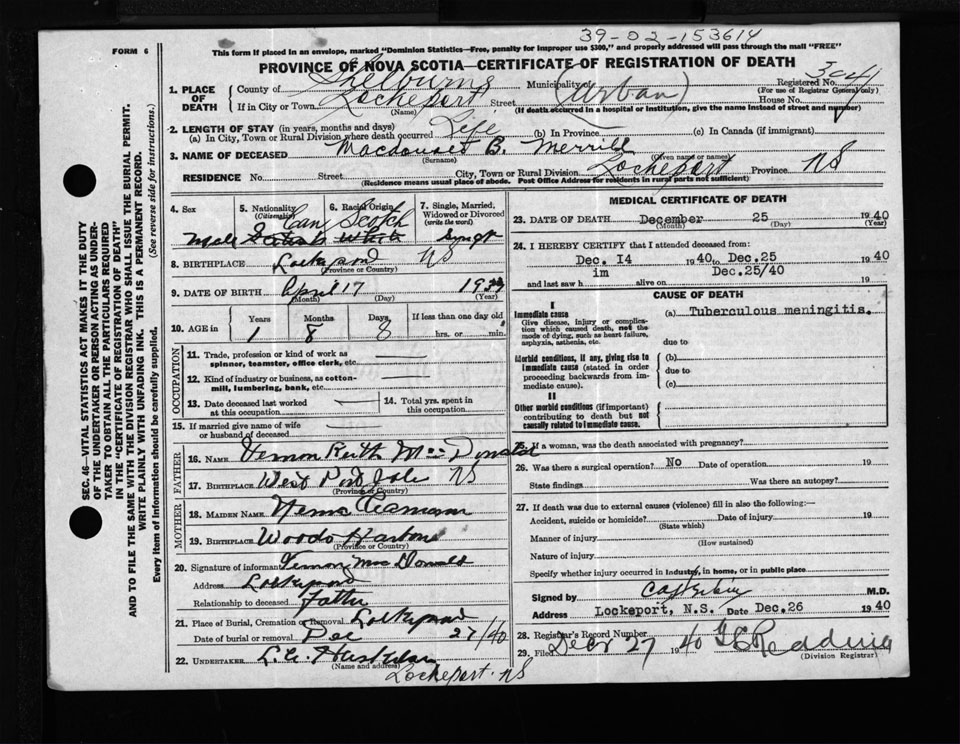 39-02-153614
FORM 6
This form if placed in an envelope, marked "Dominion Statistics—Free, penalty for improper use $300," and properly addressed will pass through the mail "FREE"
PROVINCE OF NOVA SCOTIA—CERTIFICATE OF REGISTRATION OF DEATH
SEC. 46—VITAL STATISTICS ACT MAKES IT THE DUTY
OF THE UNDERTAKER OR PERSON ACTING AS UNDER-
TAKER TO OBTAIN ALL THE PARTICULARS REQUIRED
IN THE "CERTIFICATE OF REGISTRATION OF DEATH"
AND TO FILE THE SAME WITH THE DIVISION REGISTRAR WHO SHALL ISSUE THE BURIAL PERMIT.
WRITE PLAINLY WITH UNFADING INK. THIS IS A PERMANENT RECORD.
Every item of Information should be carefully supplied. (See reverse side for instructions.)
1. PLACE OF DEATH
County of Shelburne Municipality of (Urban) Registered No. 3041
(For use of Registrar General only)
If in City or Town Lockeport Street House No.
(Name) (If death occurred in a hospital or institution, give the name instead of street and number)
2. LENGTH OF STAY (in years, months and days)
(a) In City, Town or Rural Division where death occurred Life (b) In Province (c) In Canada (if immigrant)
3. NAME OF DECEASED Macdonald B. Merrill
(Surname) (Given name or names)
RESIDENCE No. Street City, Town or Rural Division Lockeport Province NS
(Residence means usual place of abode. Post Office Address for residents in rural parts not sufficient)
4. Sex 5. Nationality (Citizenship) 6. Racial Origin 7. Single, Married, Widowed or Divorced (write the word)
Can Scotch
Male White Single
8. BIRTHPLACE Lockeport NS
(Province or Country)
9. DATE OF BIRTH April 17 1939
(Month) (Day) (Year)
10. AGE in Years Months Days If less than one day old
1 8 8 hrs. or min.
OCCUPATION
11. Trade, profession or kind of work as spinner, teamster, office clerk, etc.
12. Kind of industry or business, as cotton-mill, lumbering, bank, etc.
13. Date deceased last worked at this occupation 14. Total yrs. spent in this occupation
15. If married give name of wife or husband of deceased
FATHER
16. Name Vernon Keith MacDonald
17. Birthplace West NS
(Province or Country)
MOTHER
18. Maiden Name
19. Birthplace Woods Harbour
(Province or Country)
20. Signature of informant Vernon MacDonald
Address Lockeport
Relationship to deceased Father
21. Place of Burial, Cremation or Removal Lockeport
Date of burial or removal Dec 27/40
22. UNDERTAKER L.C.
(Name and address)
Lockeport. NS
MEDICAL CERTIFICATE OF DEATH
23. DATE OF DEATH December 25 1940
(Month) (Day) (Year)
24. I HEREBY CERTIFY that I attended deceased from:
Dec. 14 1940 to Dec. 25 1940
and last saw him alive on Dec.25/40 19
CAUSE OF DEATH
I
Immediate cause (a) Tuberculous meningitis.
Give disease, injury or complication which caused death, not the mode of dying, such as heart failure, asphyxia, asthenia, etc. due to
Morbid conditions, if any, giving rise to immediate cause (stated in order proceeding backwards from immediate cause). (b)
due to
(c)
II
Other morbid conditions (if important) contributing to death but not causally related to immediate cause.
25. If a woman, was the death associated with pregnancy?
26. Was there surgical operation? No Date of operation 19
State findings Was there an autopsy?
27. If death was due to external causes (violence) fill in also the following:—
Accident, suicide or homicide? Date of injury 19
(State which)
Manner of injury
(How sustained)
Nature of injury
Specify whether injury occurred in industry, in home, or in public place
Signed by M.D.
Address Lockeport, N.S. Date Dec.26 1940
28. Registrar's Record Number
29. Filed Dec 27 1940 Redding
(Division Registrar)